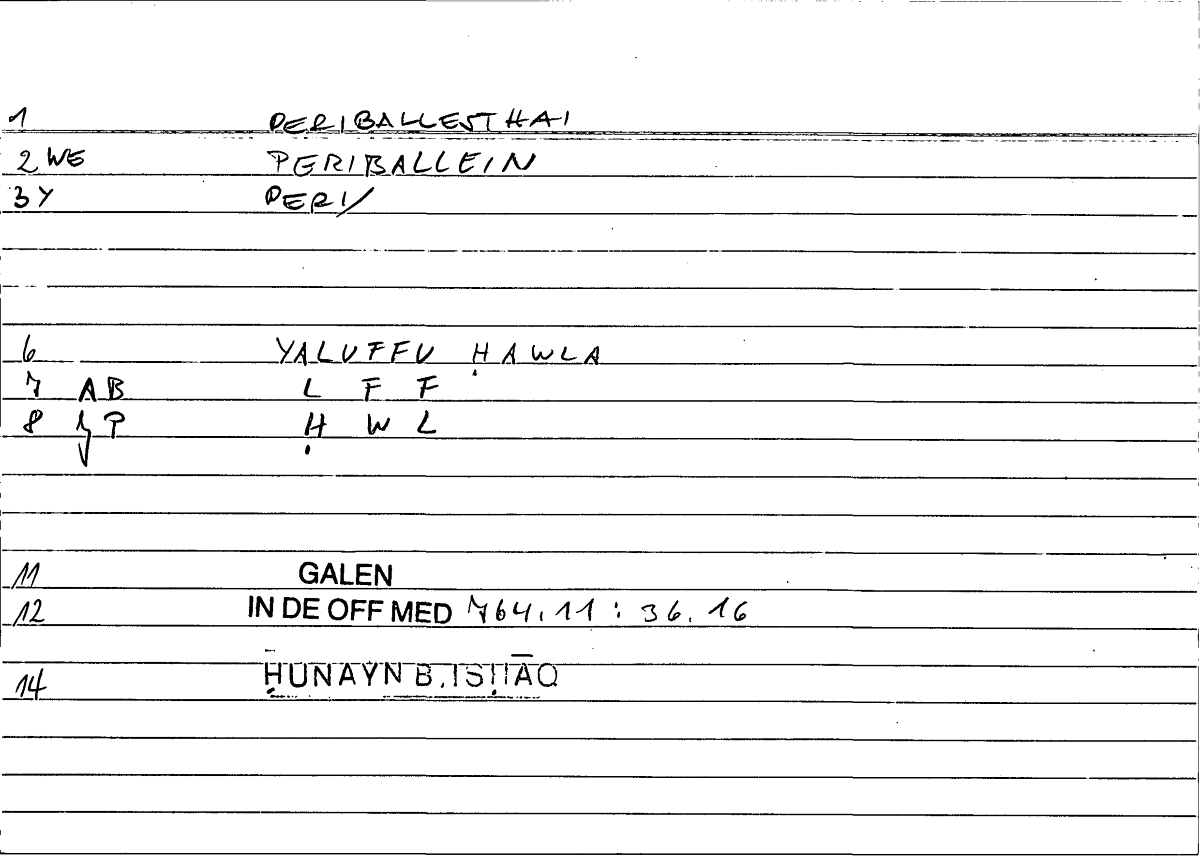 1 PERIBALLESTHAI
2 WE PERIBALLEIN
3 Y PERI/
6 YALUFFU ḤAWLA
7 AB L F F
8 P Ḥ W L
11 GALEN
12 IN DE OFF MED 764.11 : 36.16
14 ḤUNAYN B. ISḤĀQ